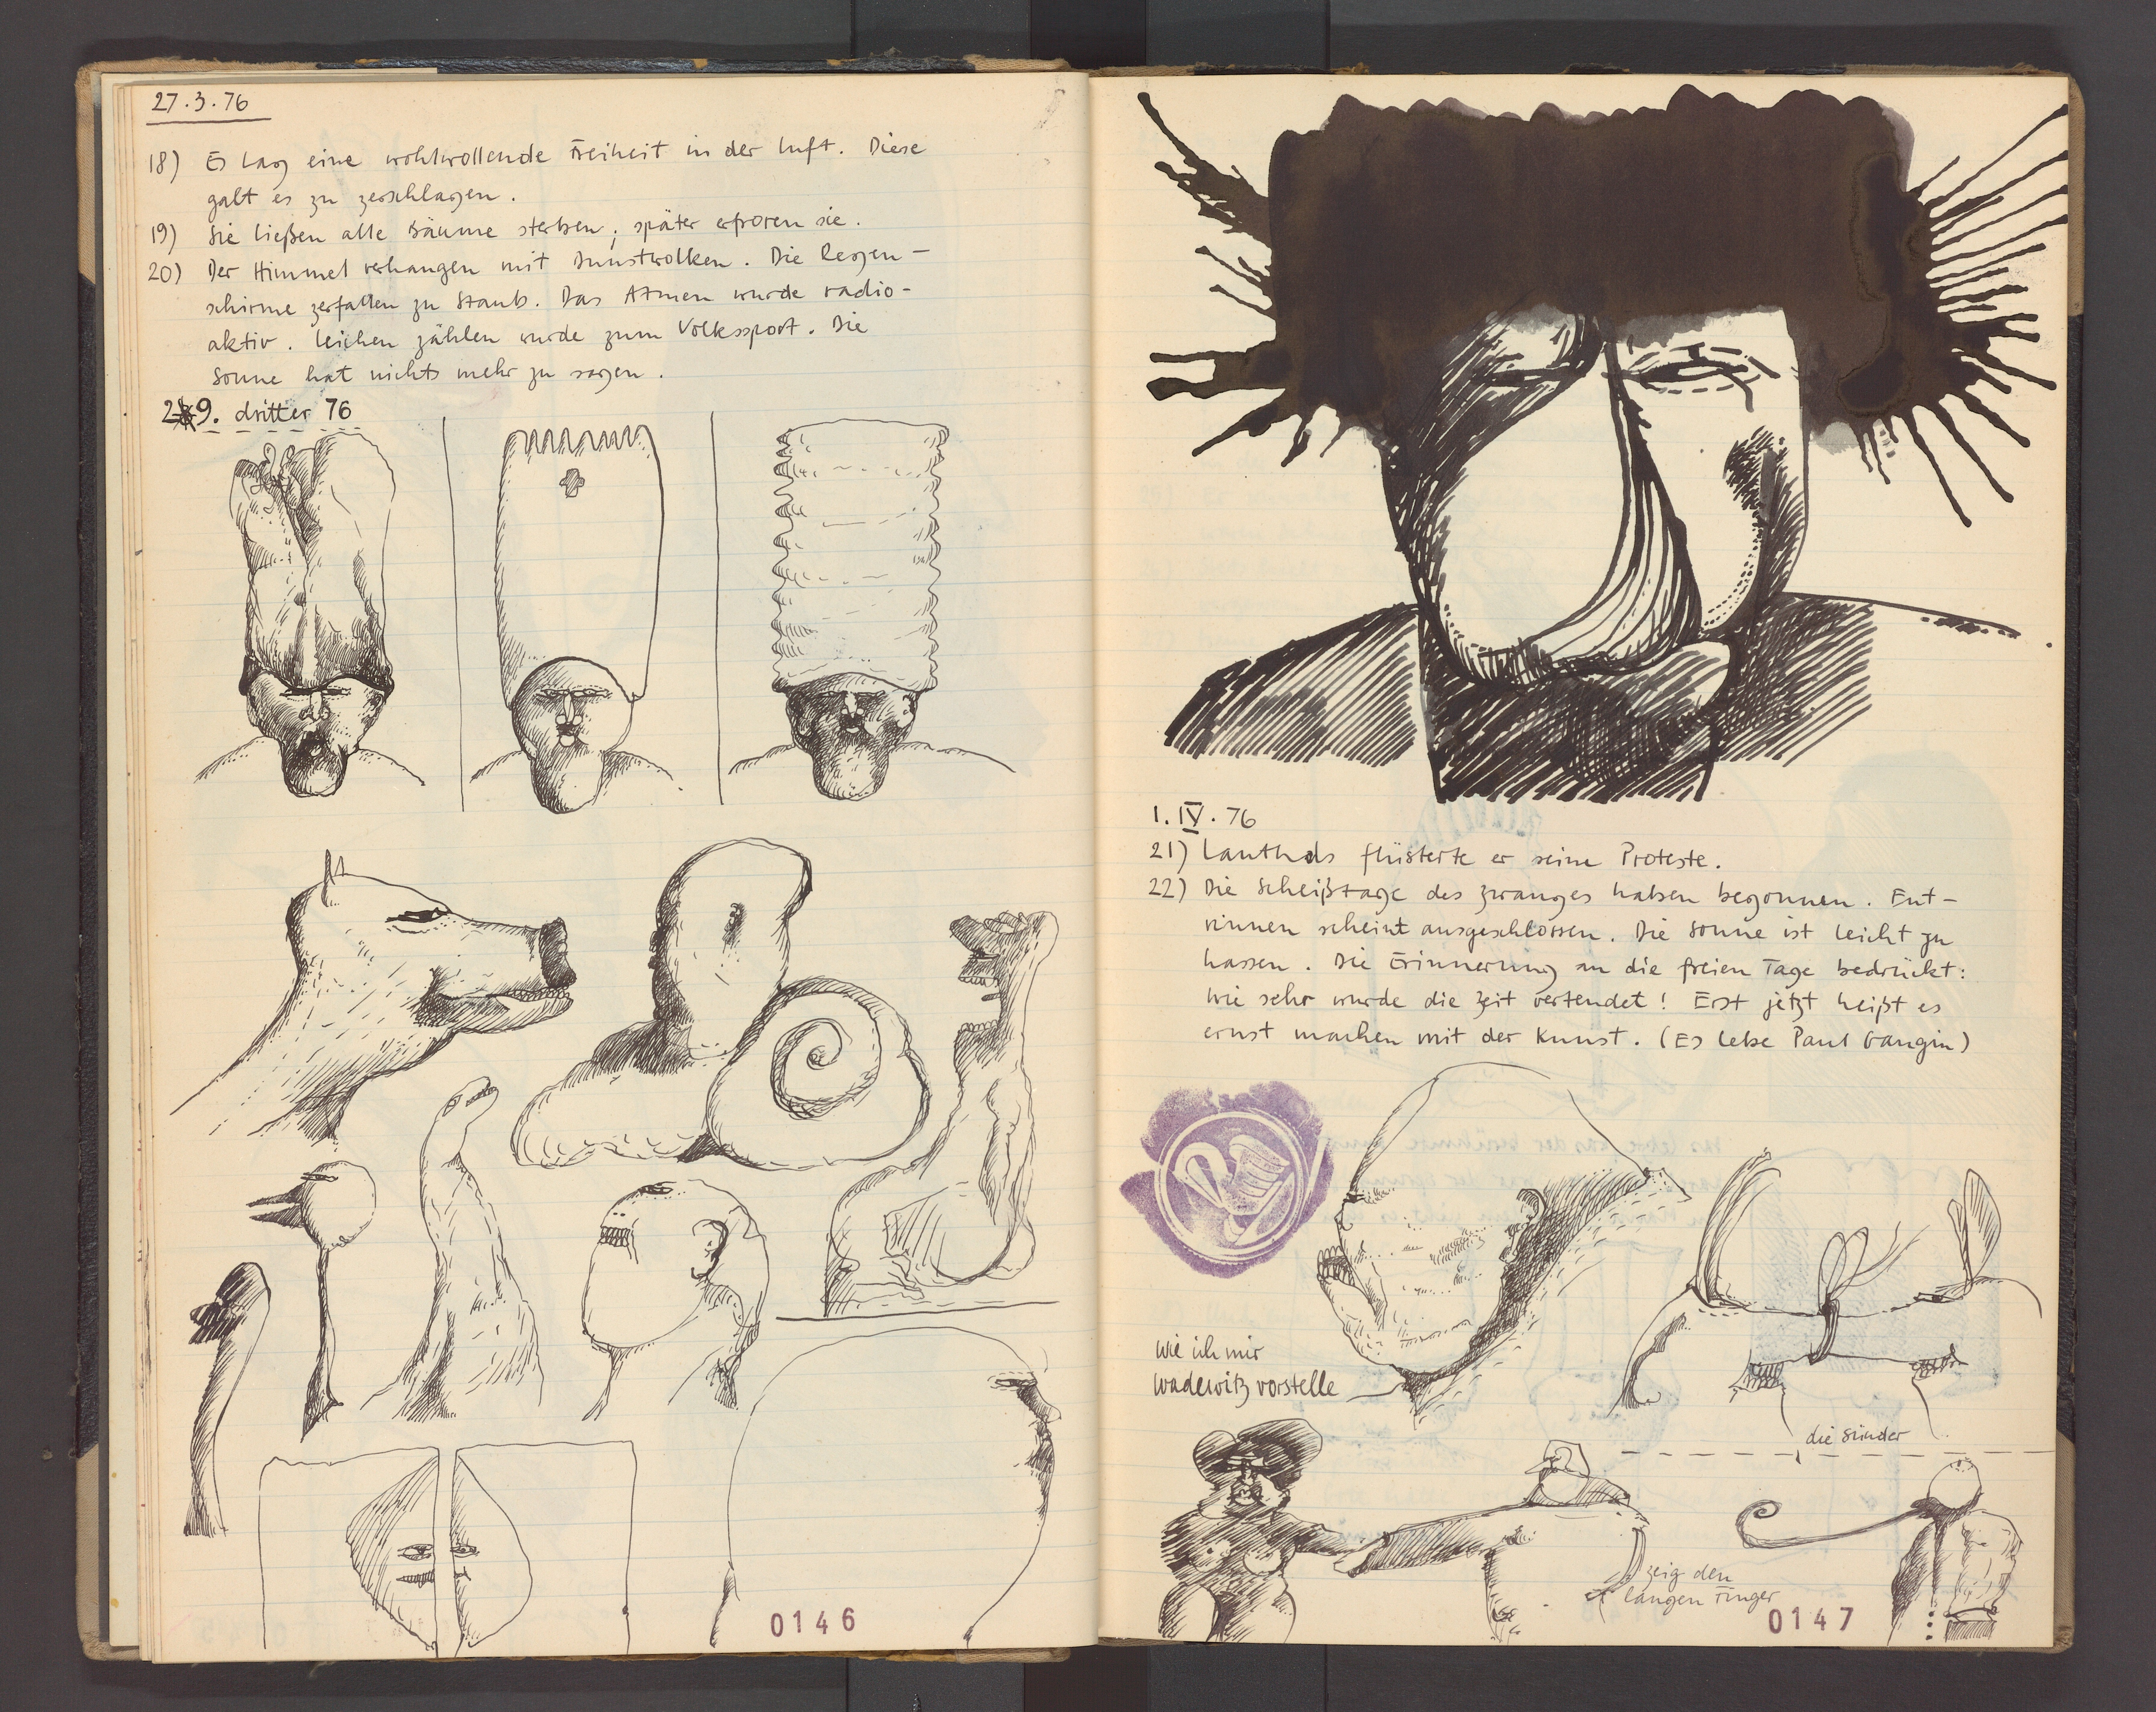 27.3.76
18) Es lag eine wohlwollende Freiheit in der Luft. Diese
galt es zu zerschlagen.
19) Sie ließen alle Bäume sterben; später erfroren sie.
20) Der Himmel verhangen mit Dunstwolken. Die Regen-
schirme zerfallen zu Staub. Das Atmen wurde radio-
aktiv. Leichen zählen wurde zum Volkssport. Die
Sonne hat nichts mehr zu sagen.
29. dritter 76
0146
1. IV. 76
21) Lauthals flüsterte er seine Proteste.
22) Die Scheißtage des Zwanges haben begonnen. Ent-
rinnen scheint ausgeschlossen. Die Sonne ist leicht zu
hassen. Die Erinnerung an die freien Tage bedrückt:
Wie sehr wurde die Zeit vertendet! Erst jetzt heißt es
ernst machen mit der Kunst. (Es lebe Paul Gaugin)
Wie ich mir
Wadewitz vorstelle
die Sünder
zeig den
langen Finger
0147